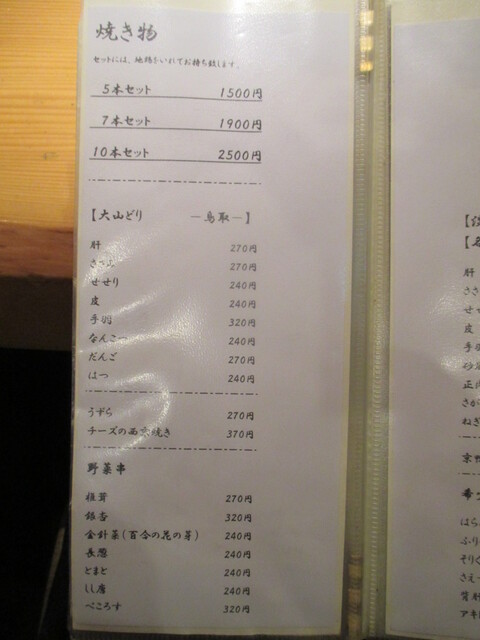 焼き物
セットには、地鶏をいれてお持ち致します。
5本セット 1500円
7本セット 1900円
10本セット 2500円
【大山どり ー鳥取ー】
肝 270円
ささみ 270円
せせり 240円
皮 240円
手羽 320円
なんこつ 240円
だんご 270円
はつ 240円
うずら 270円
チーズの西京焼き 370円
野菜串
椎茸 270円
銀杏 320円
金針菜(百合の花の芽) 240円
長葱 240円
とまと 240円
しし唐 240円
ぺころす 320円
肝
ささ
せせ
皮
手羽
砂肝
正肉
さが
ねぎ
はら
ふり
そり
さえ
背肝
アキ